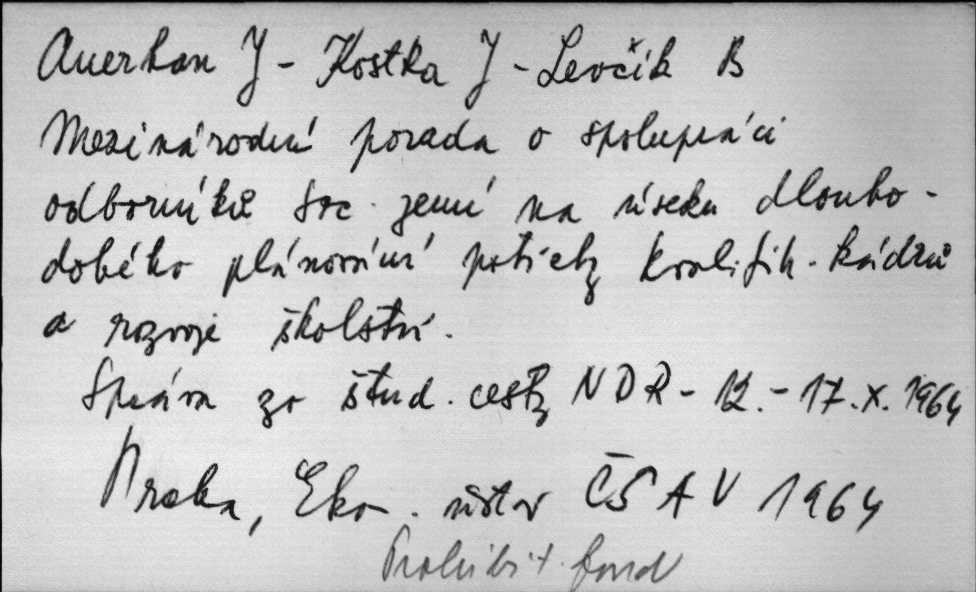 Auerhan J - Kostka J - Levčík B
Mezinárodní porada o spolupráci
odborníků soc. zemí na úseku dlouho-
dobého plánování potřeby kvalifik. kádrů
a rozvoje školství.
Správa zo štud. cesty NDR - 12. - 17. X. 1964
Praha, Eko-. ústav ČSAV 1964
Prohibit. fond